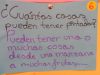 ¿Cuántas cosas
pueden tener
Pueden tener una o
muchas cosas
desde una manzana
a muchas frutas...
6